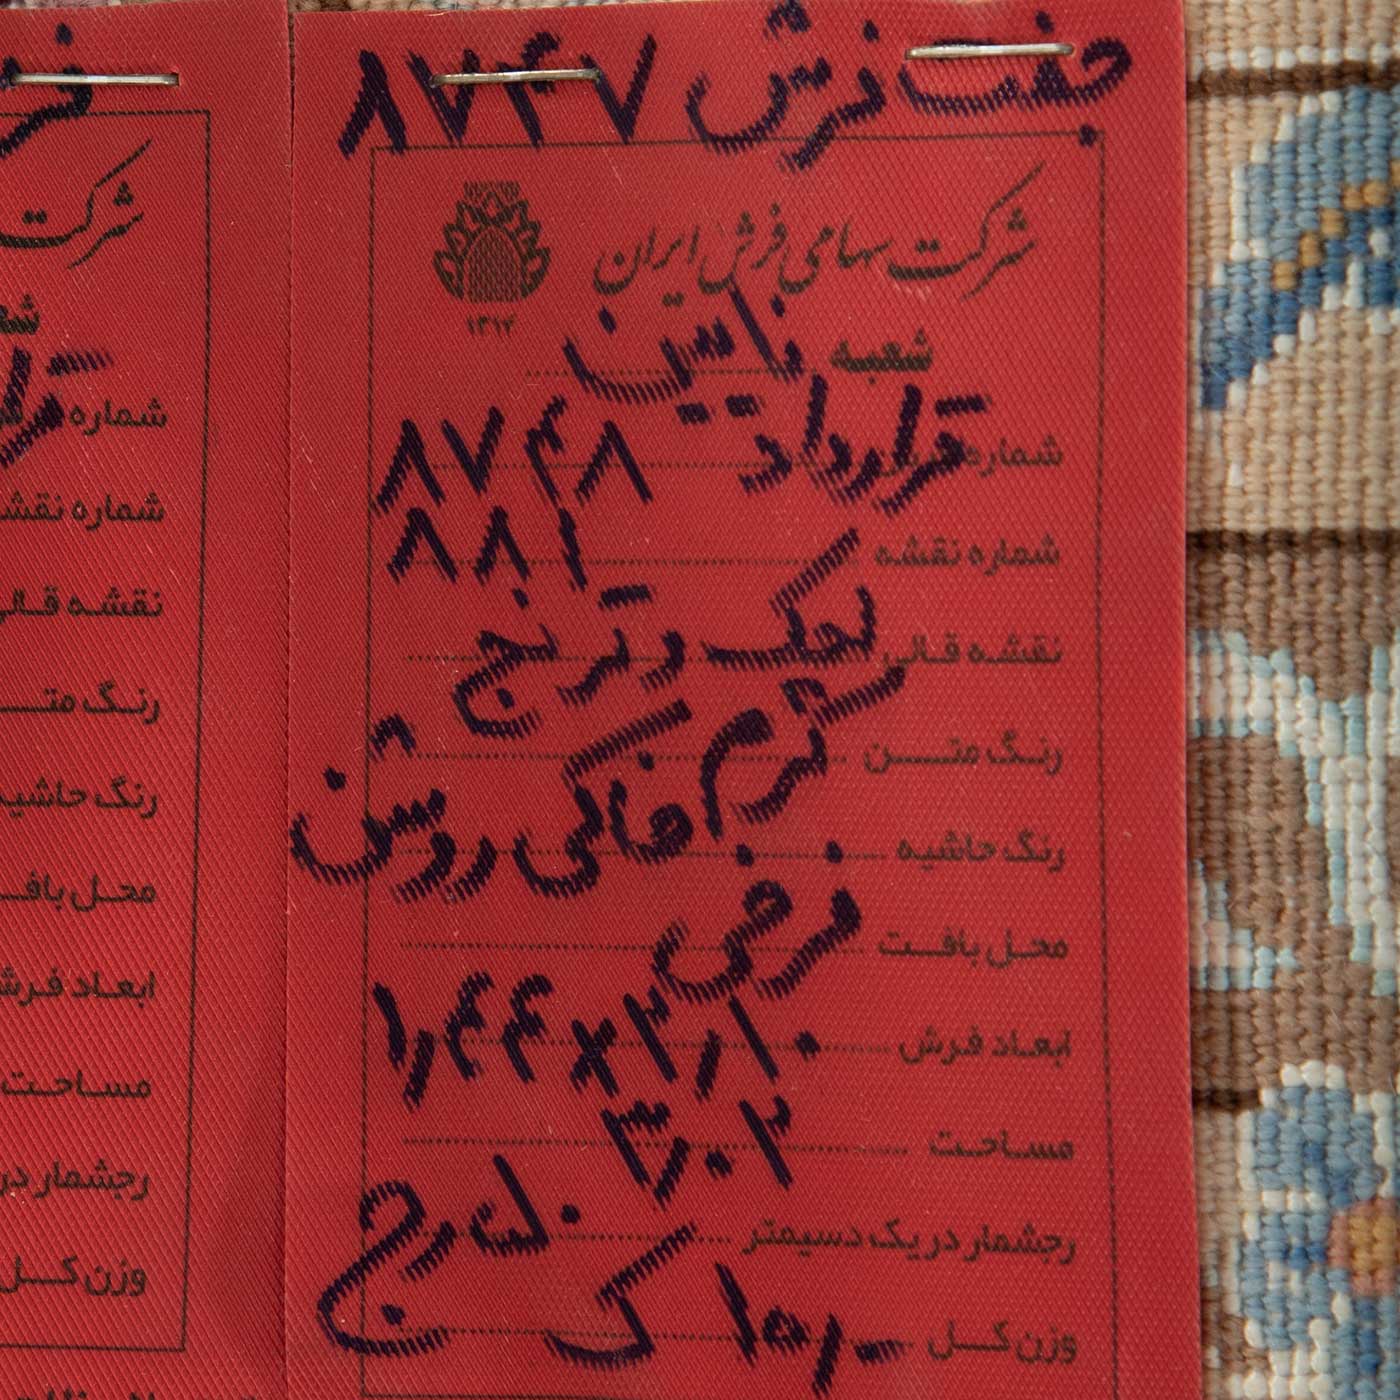 جفت فرش ۸۷۴۷
شرکت سهامی فرش ایران
۱۳۱۴
شعبه نایین
شماره قرارداد ۸۷۴۸
شماره نقشه ۸۸۱
نقشه قالی لچک و ترنج
رنگ متن کرم
رنگ حاشیه خاکی روشن
محل بافت فرضی
ابعاد فرش ۱٫۴۴×۲٫۱۰
مساحت ۳٫۰۲
رجشمار در یک دسیمتر رج
وزن کل ک
شرکت
شماره
شماره نقشه
نقشه قالی
رنگ
رنگ حاشیه
محل
ابعاد فرش
مساحت
رجشمار در
وزن کل